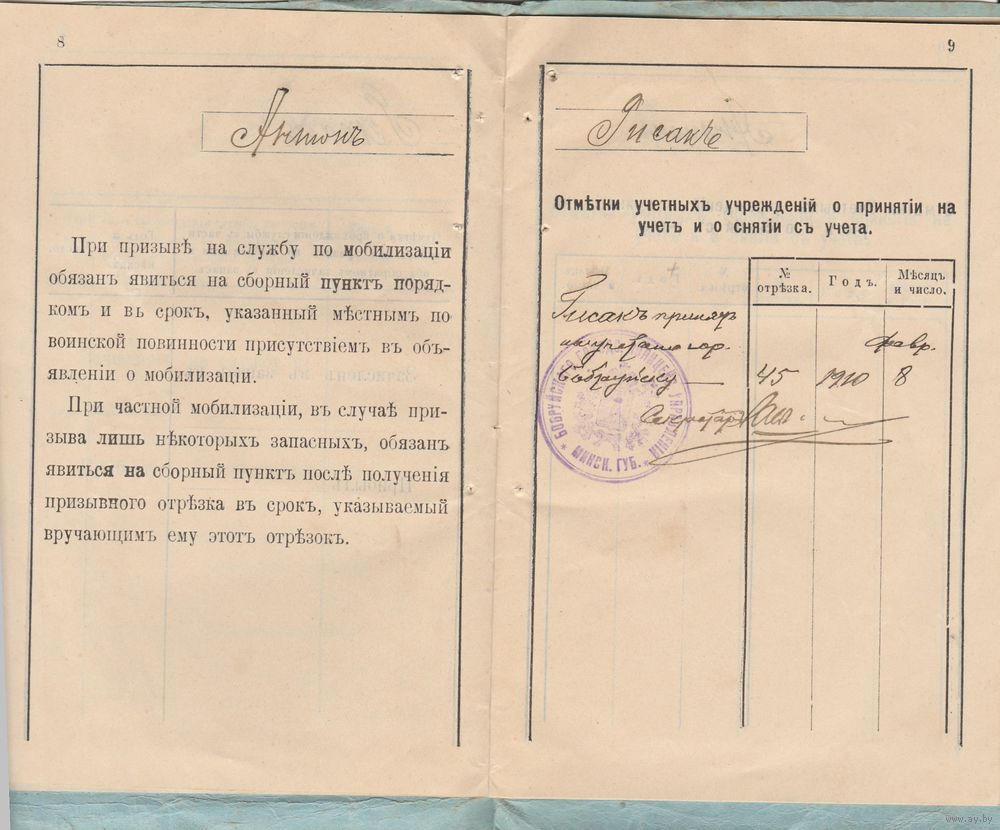 8
Антонъ
При призывѣ на службу по мобилизаціи
обязан явиться на сборный пунктъ поряд-
комъ и въ срокъ, указанный мѣстнымъ по
воинской повинности присутствіемъ въ объ-
явленіи о мобилизаціи.
При частной мобилизаціи, въ случаѣ при-
зыва лишь нѣкоторыхъ запасныхъ, обязан
явиться на сборный пунктъ послѣ полученія
призывного отрѣзка въ срокъ, указываемый
вручающимъ ему этотъ отрѣзокъ.
9
Рисакъ
Отмѣтки учетныхъ учрежденій о принятіи на
учетъ и о снятіи съ учета.
№ отрѣзка.
Годъ.
Мѣсяцъ и число.
Рисакъ принятъ
на учетъ по гор.
Бобруйску 45 1910 февр. 8
Секретарь
БОБРУЙСКАГО ПОЛИЦЕЙ УПРАВЛЕНІЯ
МИНСК. ГУБ.
www.ay.by